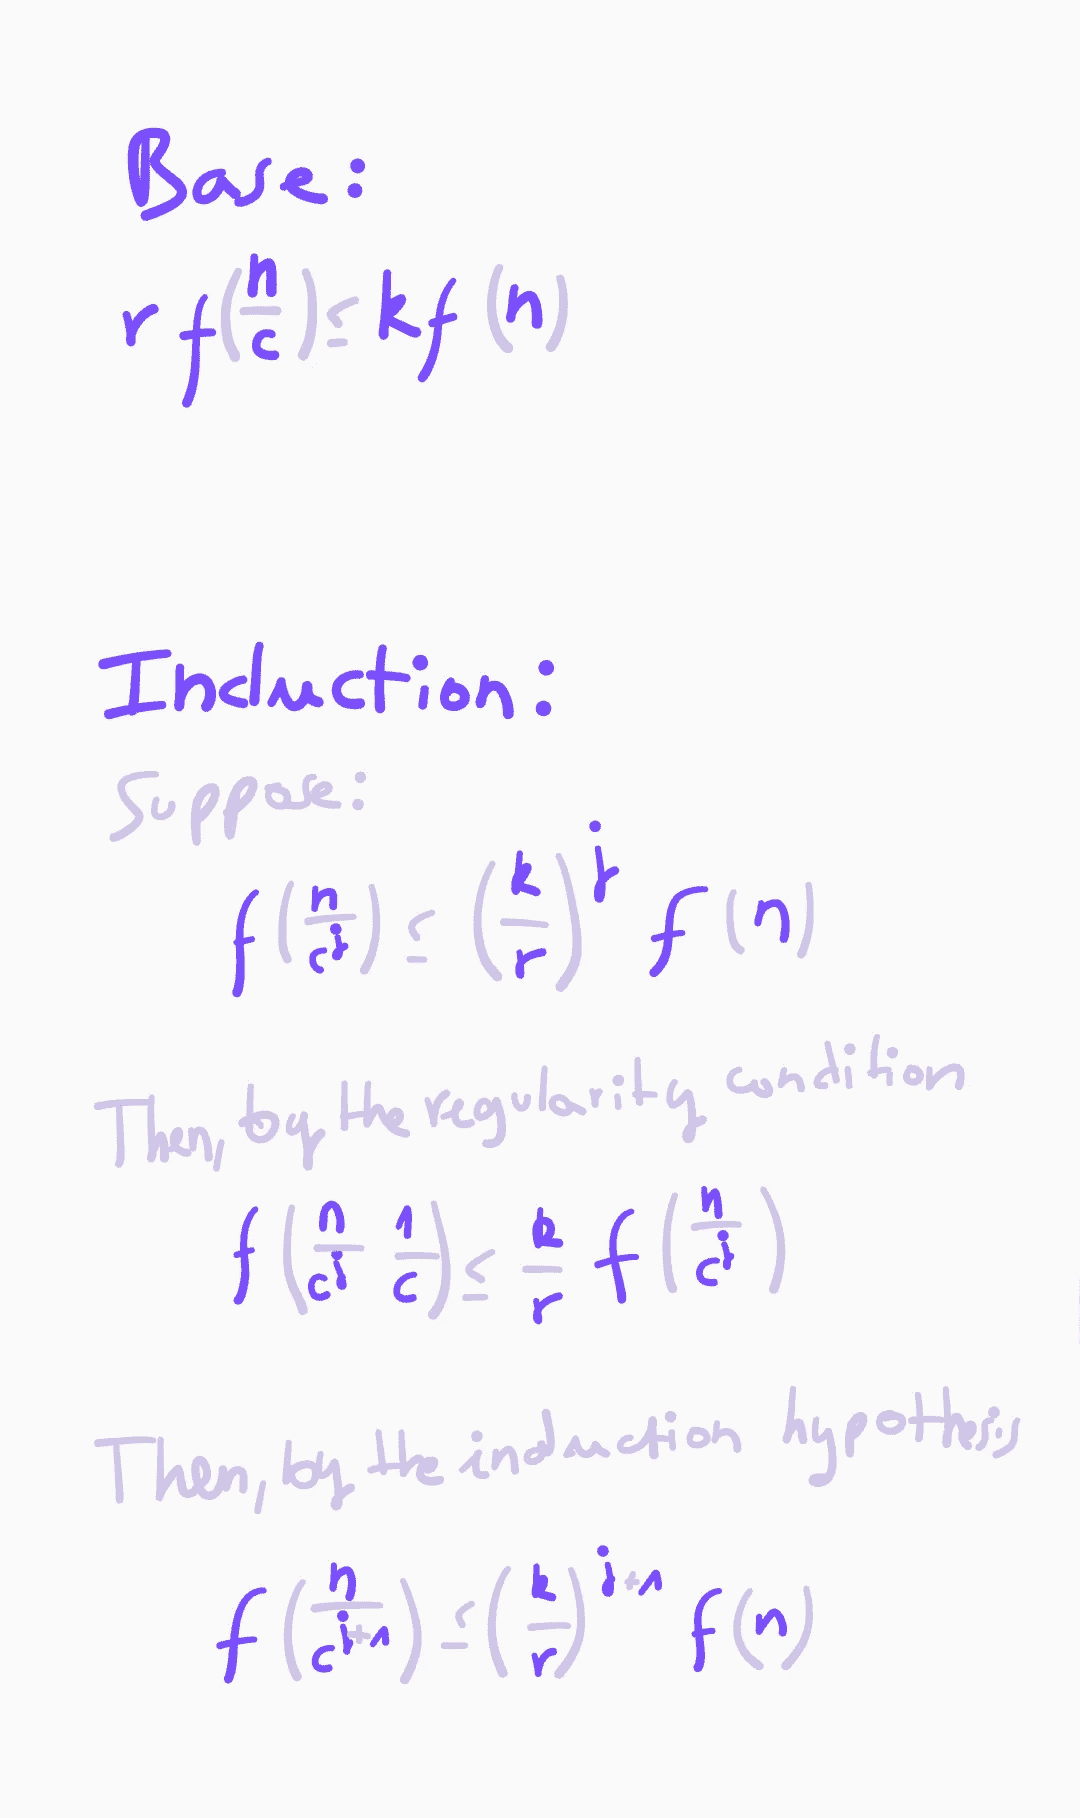 Base:
r f(n/c) ≤ k f(n)
Induction:
Suppose:
f(n/c^j) ≤ (k/r)^j f(n)
Then, by the regularity condition
f(n/c^j 1/c) ≤ k/r f(n/c^j)
Then, by the induction hypothesis
f(n/c^{j+1}) ≤ (k/r)^{j+1} f(n)